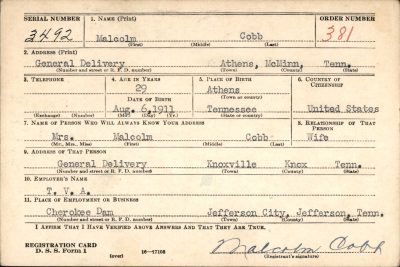 SERIAL NUMBER 1. NAME (Print) ORDER NUMBER
3492 Malcolm Cobb 381
(First) (Middle) (Last)
2. ADDRESS (Print)
General Delivery Athens, McMinn, Tenn.
(Number and street or R. F. D. number) (Town) (County) (State)
3. TELEPHONE 4. AGE IN YEARS 5. PLACE OF BIRTH 6. COUNTRY OF CITIZENSHIP
29 Athens
DATE OF BIRTH (Town or county)
Aug. 6, 1911 Tennessee United States
(Exchange) (Number) (Mo.) (Day) (Yr.) (State or country)
7. NAME OF PERSON WHO WILL ALWAYS KNOW YOUR ADDRESS 8. RELATIONSHIP OF THAT PERSON
Mrs. Malcolm Cobb Wife
(Mr., Mrs., Miss) (First) (Middle) (Last)
9. ADDRESS OF THAT PERSON
General Delivery Knoxville Knox Tenn.
(Number and street or R. F. D. number) (Town) (County) (State)
10. EMPLOYER'S NAME
T. V. A.
11. PLACE OF EMPLOYMENT OR BUSINESS
Cherokee Dam Jefferson City, Jefferson, Tenn.
(Number and street or R. F. D. number) (Town) (County) (State)
I AFFIRM THAT I HAVE VERIFIED ABOVE ANSWERS AND THAT THEY ARE TRUE.
REGISTRATION CARD
D. S. S. Form 1 (over) 16—17105 Malcolm Cobb
(Registrant's signature)